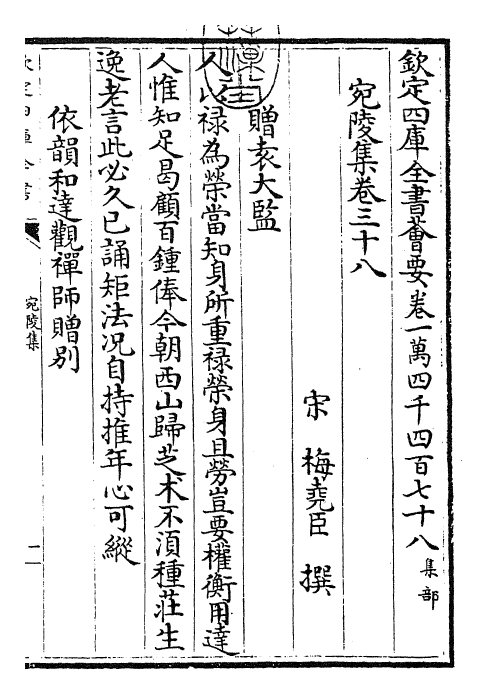 欽定四庫全書薈要卷一萬四千四百七十八集部
宛陵集卷三十八
宋 梅堯臣 撰
贈袁大監
人以禄為榮當知身所重禄榮身且勞豈要權衡用達
人惟知足曷顧百鍾俸今朝西山歸芝术不湏種莊生
逸老言此必久已誦矩法况自持推年心可縱
依韻和達觀禪師贈別
宛陵集